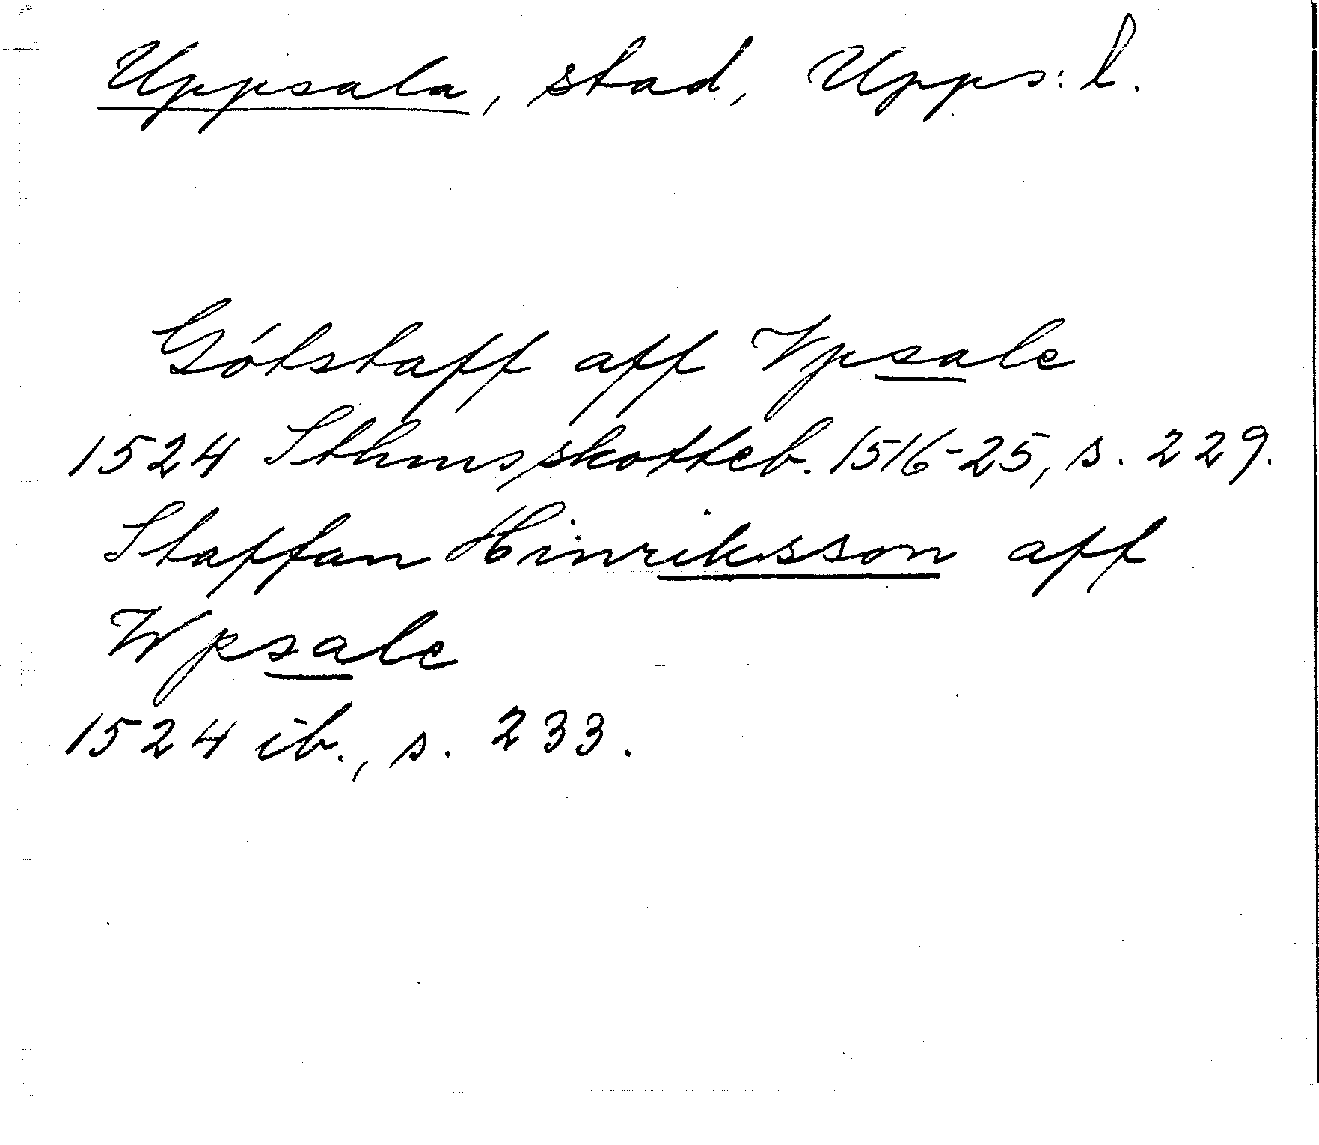 Uppsala, stad, Upps: l.
Gótstaff aff Vpsale
1524 Sthms skotteb. 1516-25, s. 229.
Staffan Hinriksson aff
Wpsale
1524 ib., s. 233.